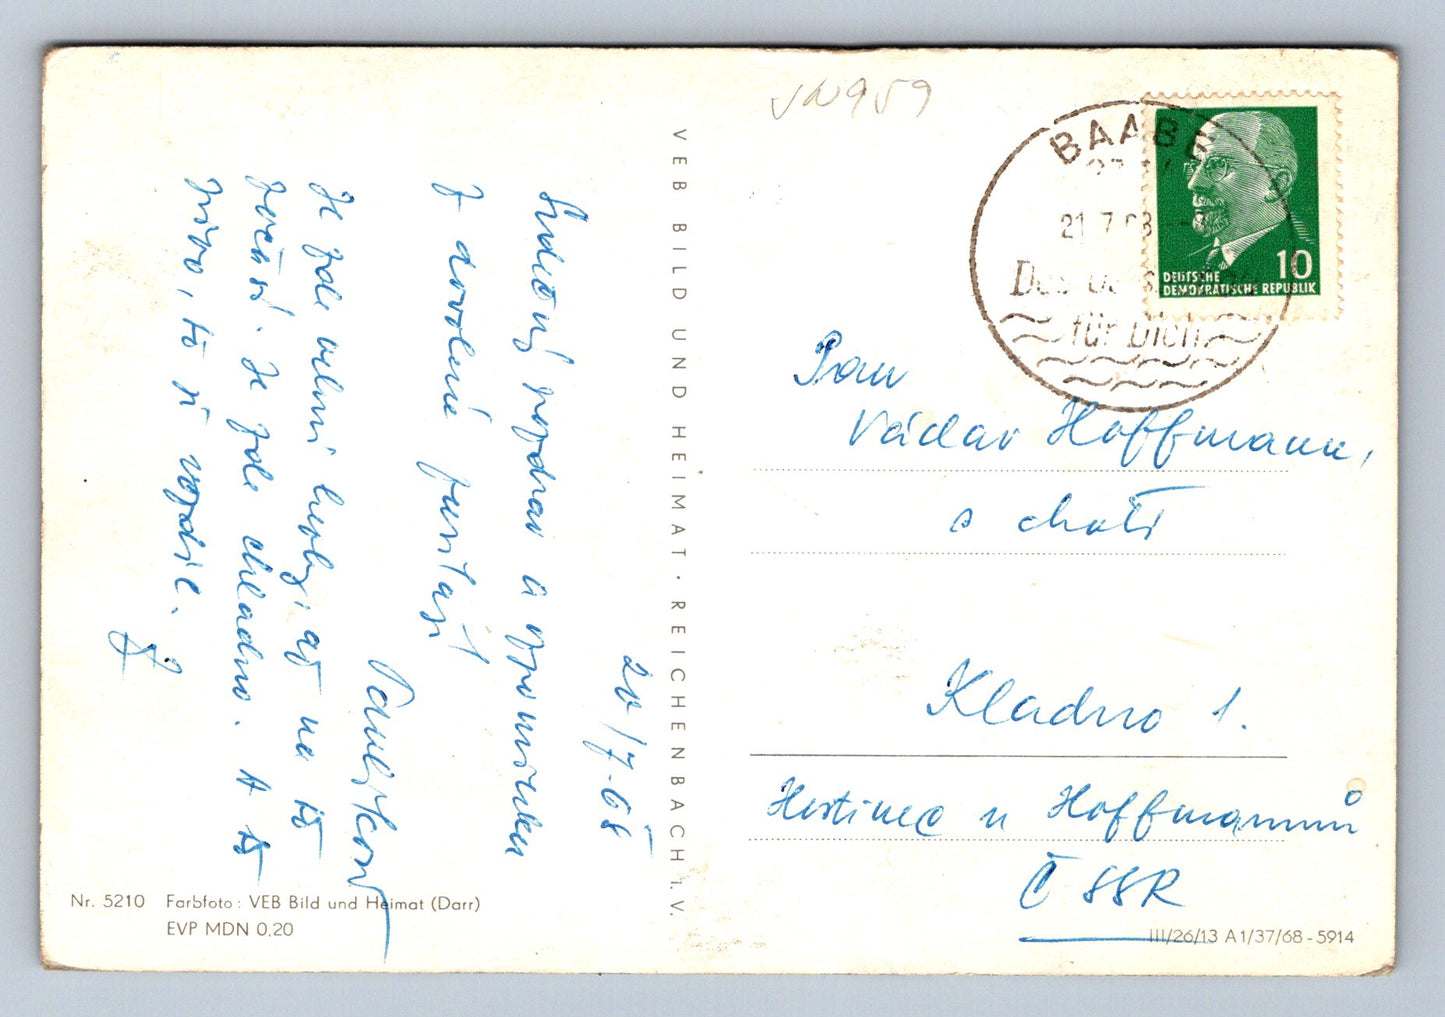 20/7-68
Srdečný pozdrav a vzpomínku
z dovolené
Je zde velmi hezky, až na to
počasí. Je zde chladno. A to
pivo, to si vozdíl.
VEB BILD UND HEIMAT · REICHENBACH i. V.
Nr. 5210 Farbfoto: VEB Bild und Heimat (Darr)
EVP MDN 0,20
BAABE
21.7.68
für Dich
10
DEUTSCHE
DEMOKRATISCHE REPUBLIK
Pan
Václav Hoffmann,
s chotí
Kladno 1.
Hostinec u Hoffmannů
ČSSR
III/26/13 A1/37/68-5914